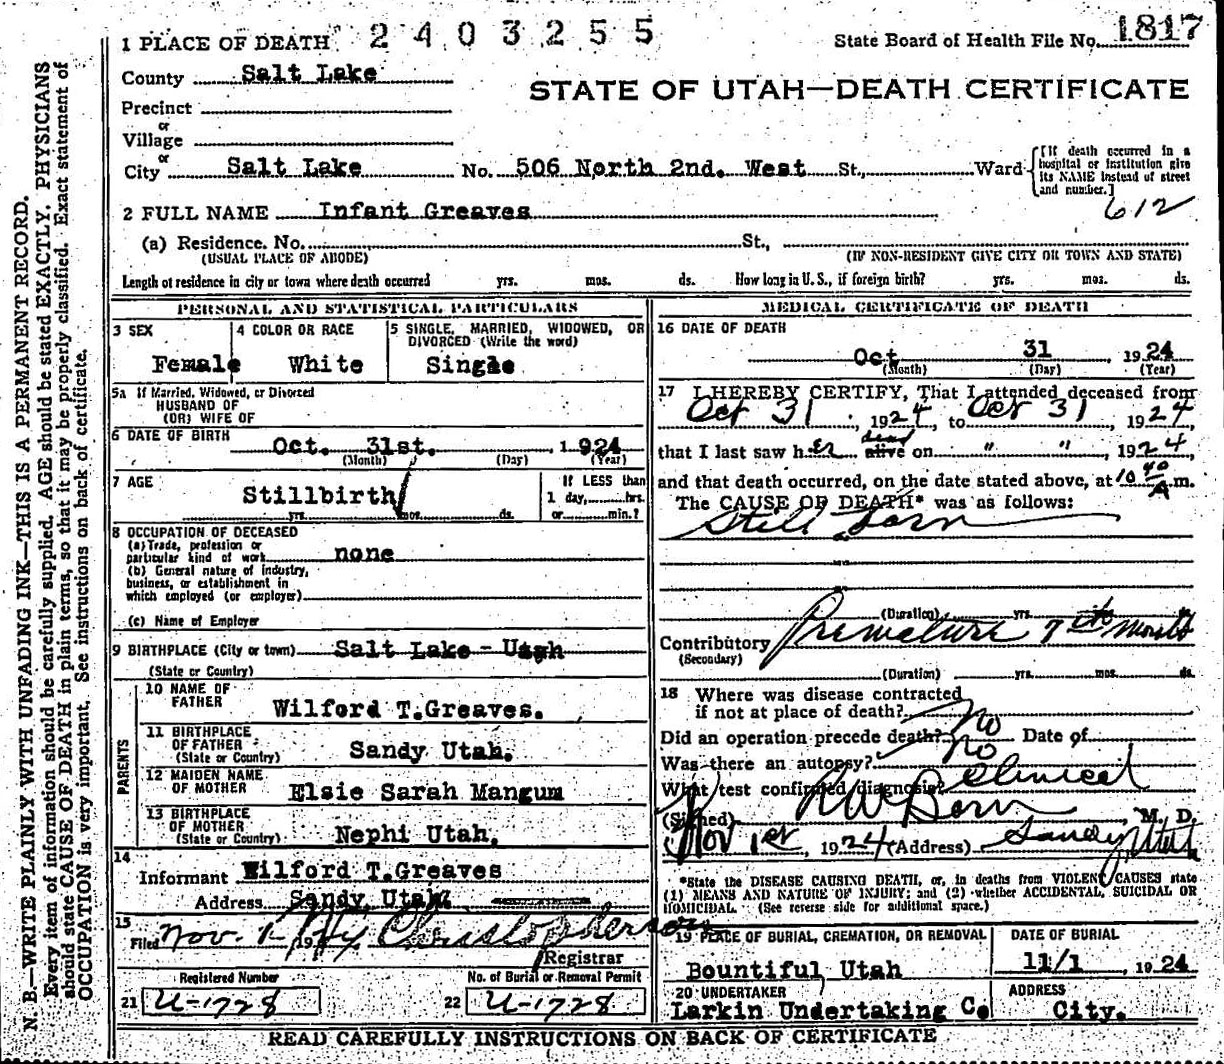 1 PLACE OF DEATH 2403255 State Board of Health File No. 1817
County Salt Lake
STATE OF UTAH—DEATH CERTIFICATE
Precinct
or
Village
or
City Salt Lake No. 506 North 2nd. West St., Ward
[If death occurred in a
hospital or institution give
its NAME instead of street
and number.]
612
2 FULL NAME Infant Greaves
(a) Residence. No. St.,
(USUAL PLACE OF ABODE) (IF NON-RESIDENT GIVE CITY OR TOWN AND STATE)
Length of residence in city or town where death occurred yrs. mos. ds. How long in U. S., if foreign birth? yrs. mos. ds.
PERSONAL AND STATISTICAL PARTICULARS
3 SEX
Female
4 COLOR OR RACE
White
5 SINGLE, MARRIED, WIDOWED, OR
DIVORCED (Write the word)
Single
5a If Married, Widowed, or Divorced
HUSBAND OF
(OR) WIFE OF
6 DATE OF BIRTH
Oct. 31st. 1924
(Month) (Day) (Year)
7 AGE
Stillbirth
yrs. mos. ds.
If LESS than
1 day, hrs.
or min.?
8 OCCUPATION OF DECEASED
(a) Trade, profession or
particular kind of work none
(b) General nature of industry,
business, or establishment in
which employed (or employer)
(c) Name of Employer
9 BIRTHPLACE (City or town) Salt Lake - Utah
(State or Country)
PARENTS
10 NAME OF
FATHER
Wilford T.Greaves.
11 BIRTHPLACE
OF FATHER
(State or Country)
Sandy Utah.
12 MAIDEN NAME
OF MOTHER
Elsie Sarah Mangum
13 BIRTHPLACE
OF MOTHER
(State or Country)
Nephi Utah.
14
Informant Wilford T.Greaves
Address Sandy Utah
15
Filed Nov. 1- 1924 Christopherson
Registrar
Registered Number
21 U-1728
No. of Burial or Removal Permit
22 U-1728
MEDICAL CERTIFICATE OF DEATH
16 DATE OF DEATH
Oct 31, 1924
(Month) (Day) (Year)
17 I HEREBY CERTIFY, That I attended deceased from
Oct 31, 1924, to Oct 31 1924,
dead
that I last saw her alive on " ", 1924,
and that death occurred, on the date stated above, at 10 40 A.m.
The CAUSE OF DEATH* was as follows:
Still born
(Duration) yrs. ds.
Contributory Premature 7th month
(Secondary)
(Duration) yrs. mos. ds.
18 Where was disease contracted
if not at place of death?
Did an operation precede death? No Date of
Was there an autopsy? No
What test confirmed diagnosis? Clinical
(Signed) , M. D.
Nov 1st, 1924 (Address) Sandy, Utah
*State the DISEASE CAUSING DEATH, or, in deaths from VIOLENT CAUSES state
(1) MEANS AND NATURE OF INJURY; and (2) whether ACCIDENTAL, SUICIDAL OR
HOMICIDAL. (See reverse side for additional space.)
19 PLACE OF BURIAL, CREMATION, OR REMOVAL
Bountiful Utah
DATE OF BURIAL
11/1, 1924
20 UNDERTAKER
Larkin Undertaking Co
ADDRESS
City.
READ CAREFULLY INSTRUCTIONS ON BACK OF CERTIFICATE
N. B.—WRITE PLAINLY WITH UNFADING INK—THIS IS A PERMANENT RECORD.
Every item of information should be carefully supplied. AGE should be stated EXACTLY. PHYSICIANS
should state CAUSE OF DEATH in plain terms, so that it may be properly classified. Exact statement of
OCCUPATION is very important. See instructions on back of certificate.